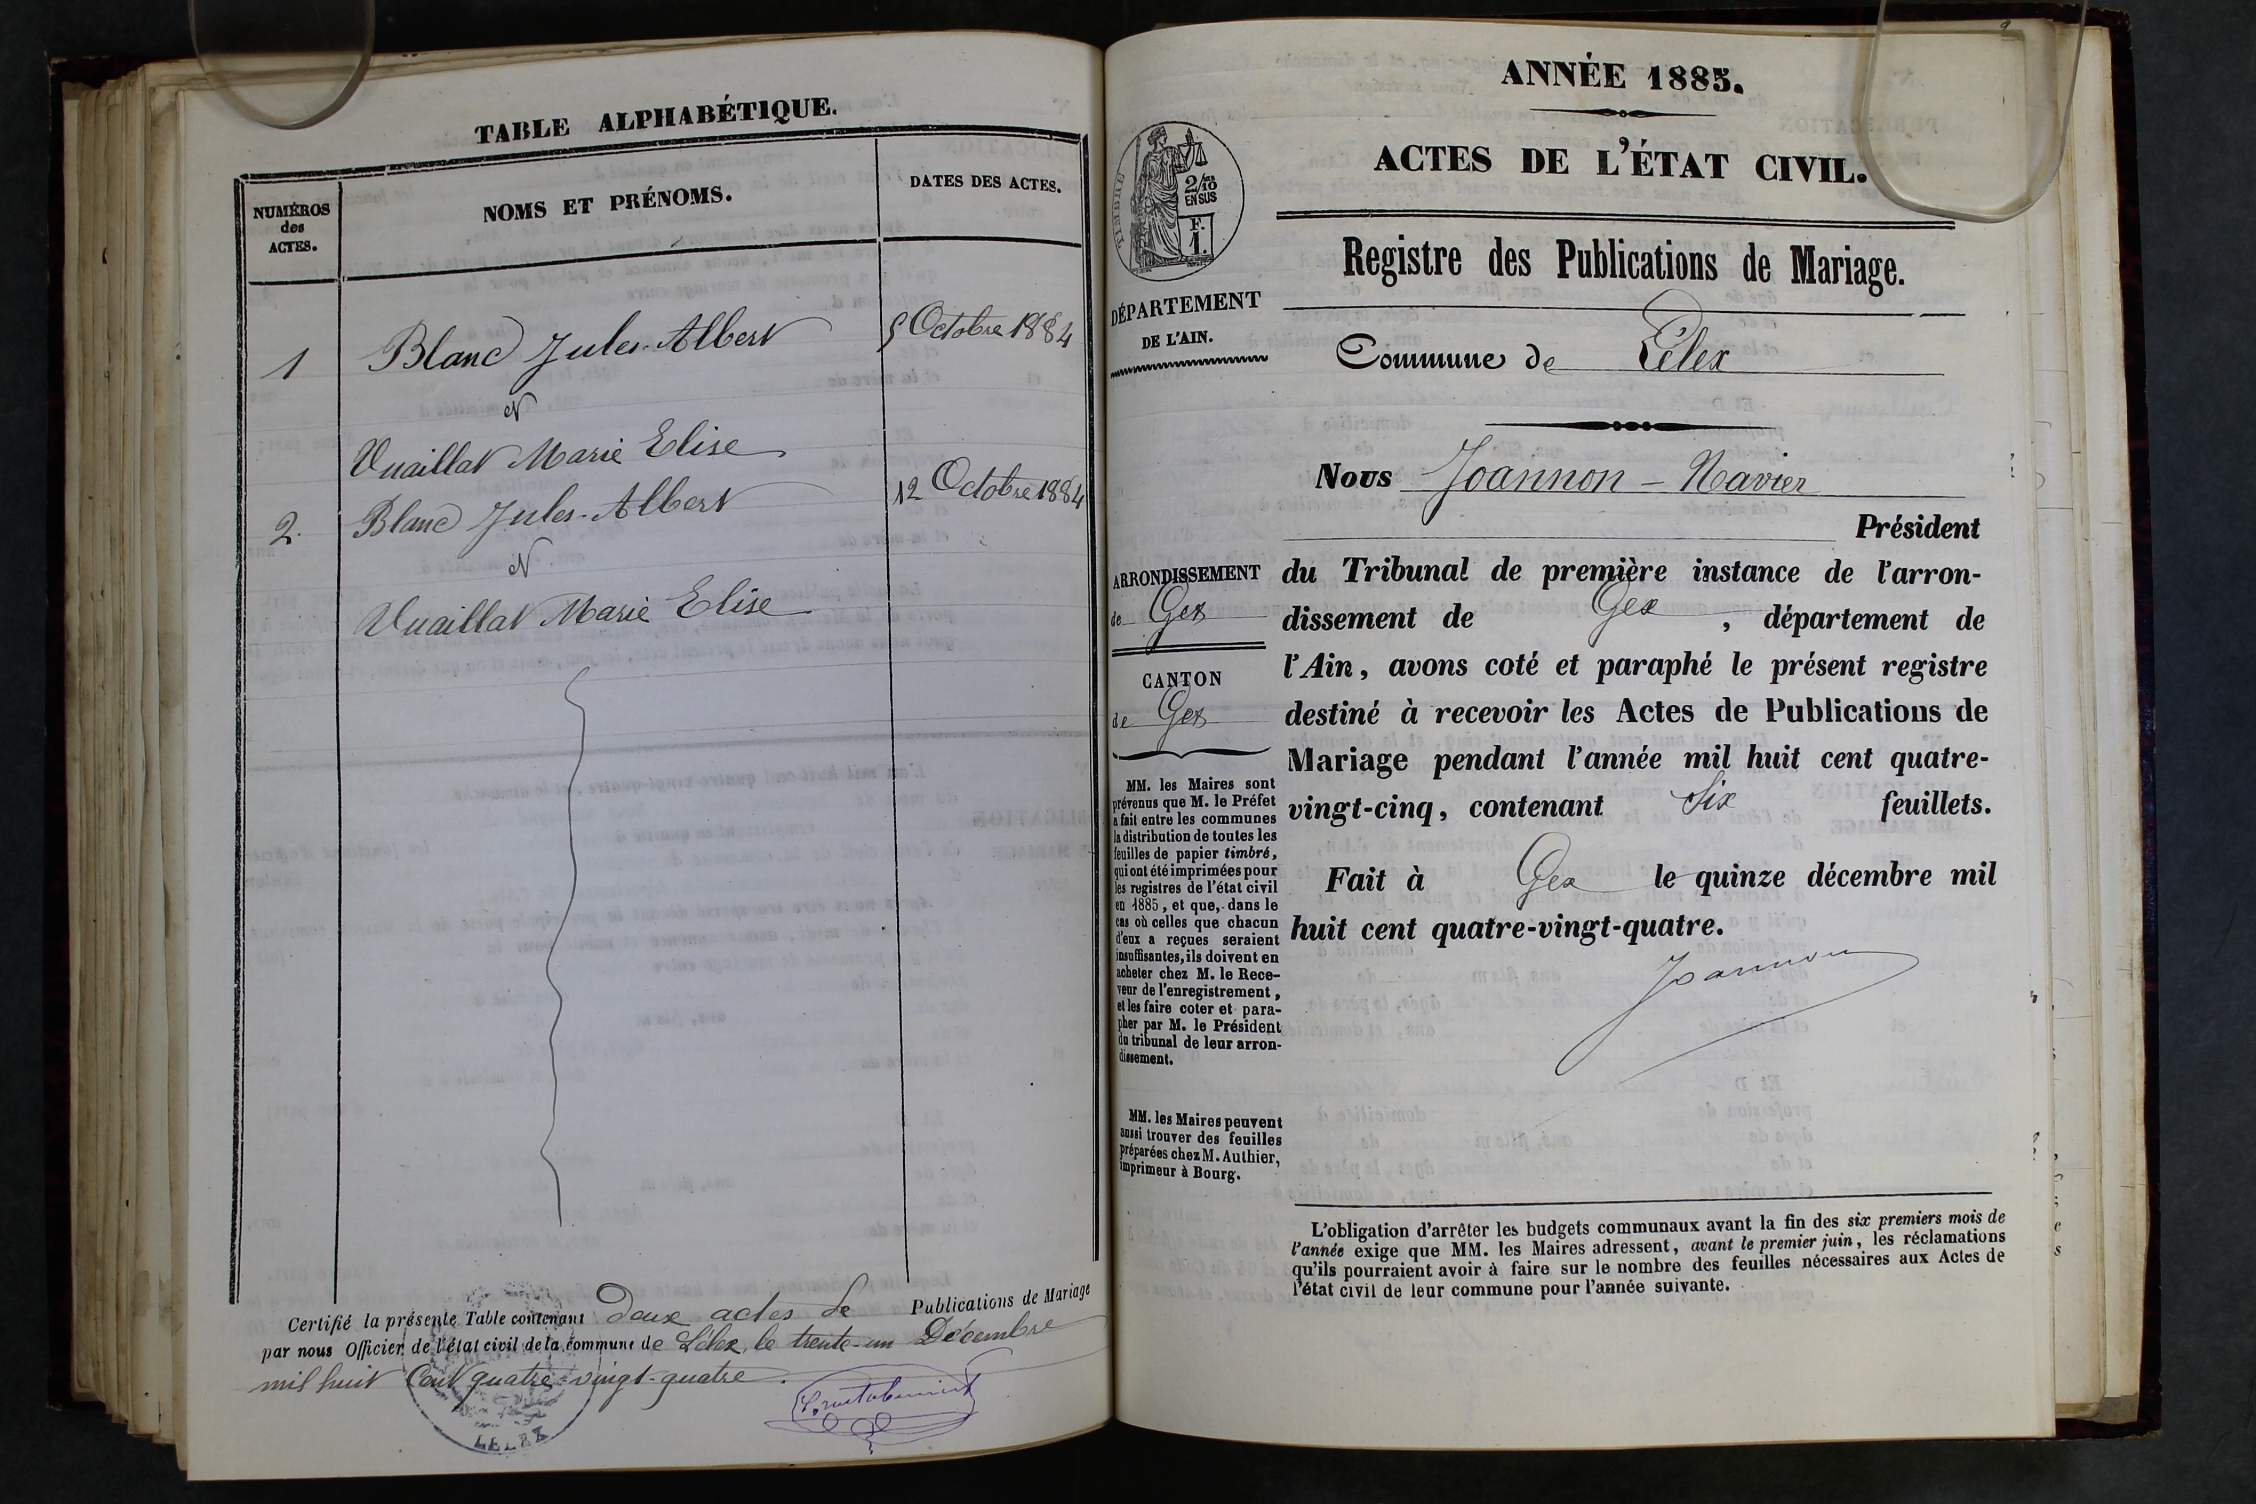 TABLE ALPHABÉTIQUE.
NUMÉROS
des
ACTES.
NOMS ET PRÉNOMS.
DATES DES ACTES.
1
Blanc Jules-Albert
5 Octobre 1884
et
Vuaillat Marie Elise
2.
Blanc Jules-Albert
12 Octobre 1884
et
Vuaillat Marie Elise
Certifié la présente Table contenant Deux actes de Publications de Mariage
par nous Officier de l'état civil de la commune de Lélex, le trente-un Décembre
mil huit Cent quatre-vingt-quatre.
LELEX
ANNÉE 1885.
ACTES DE L'ÉTAT CIVIL.
TIMBRE
2/10
EN SUS
F.
1.
Registre des Publications de Mariage.
DÉPARTEMENT
DE L'AIN.
Commune de Lélex
Nous Joannon-Navier
Président
ARRONDISSEMENT
de Gex
CANTON
de Gex
du Tribunal de première instance de l'arron-
dissement de Gex, département de
l'Ain, avons coté et paraphé le présent registre
destiné à recevoir les Actes de Publications de
Mariage pendant l'année mil huit cent quatre-
vingt-cinq, contenant Six feuillets.
Fait à Gex le quinze décembre mil
huit cent quatre-vingt-quatre.
Joannon
MM. les Maires sont
prévenus que M. le Préfet
a fait entre les communes
la distribution de toutes les
feuilles de papier timbré,
qui ont été imprimées pour
les registres de l'état civil
en 1885, et que, dans le
cas où celles que chacun
d'eux a reçues seraient
insuffisantes, ils doivent en
acheter chez M. le Rece-
veur de l'enregistrement,
et les faire coter et para-
pher par M. le Président
du tribunal de leur arron-
dissement.
MM. les Maires peuvent
aussi trouver des feuilles
préparées chez M. Authier,
imprimeur à Bourg.
L'obligation d'arrêter les budgets communaux avant la fin des six premiers mois de
l'année exige que MM. les Maires adressent, avant le premier juin, les réclamations
qu'ils pourraient avoir à faire sur le nombre des feuilles nécessaires aux Actes de
l'état civil de leur commune pour l'année suivante.